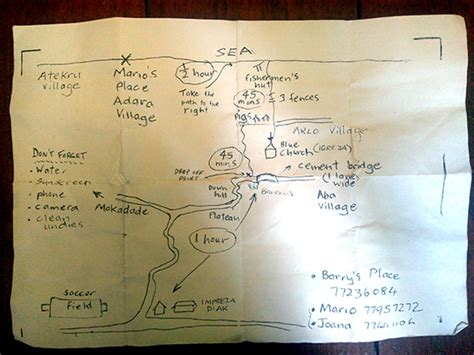 SEA
Atekru
Village
Mario's
Place
Adara
Village
1/2 hour
Take the
path to the
right
fishermen's
hut
45
mins
3 fences
Pigs
ARLO Village
Blue
Church (IGREJA)
cement bridge
(1 lane)
wide
Aba
Village
45
mins
DROP OFF
POINT
Down
hill
Plateau
1 hour
DON'T FORGET
- Water
- Sunscreen
- phone
- camera
- clean
undies
Makadade
Soccer
Field
IMPREZA
DIAK
• Barry's Place
77236084
• Mario 77957272
• Joana